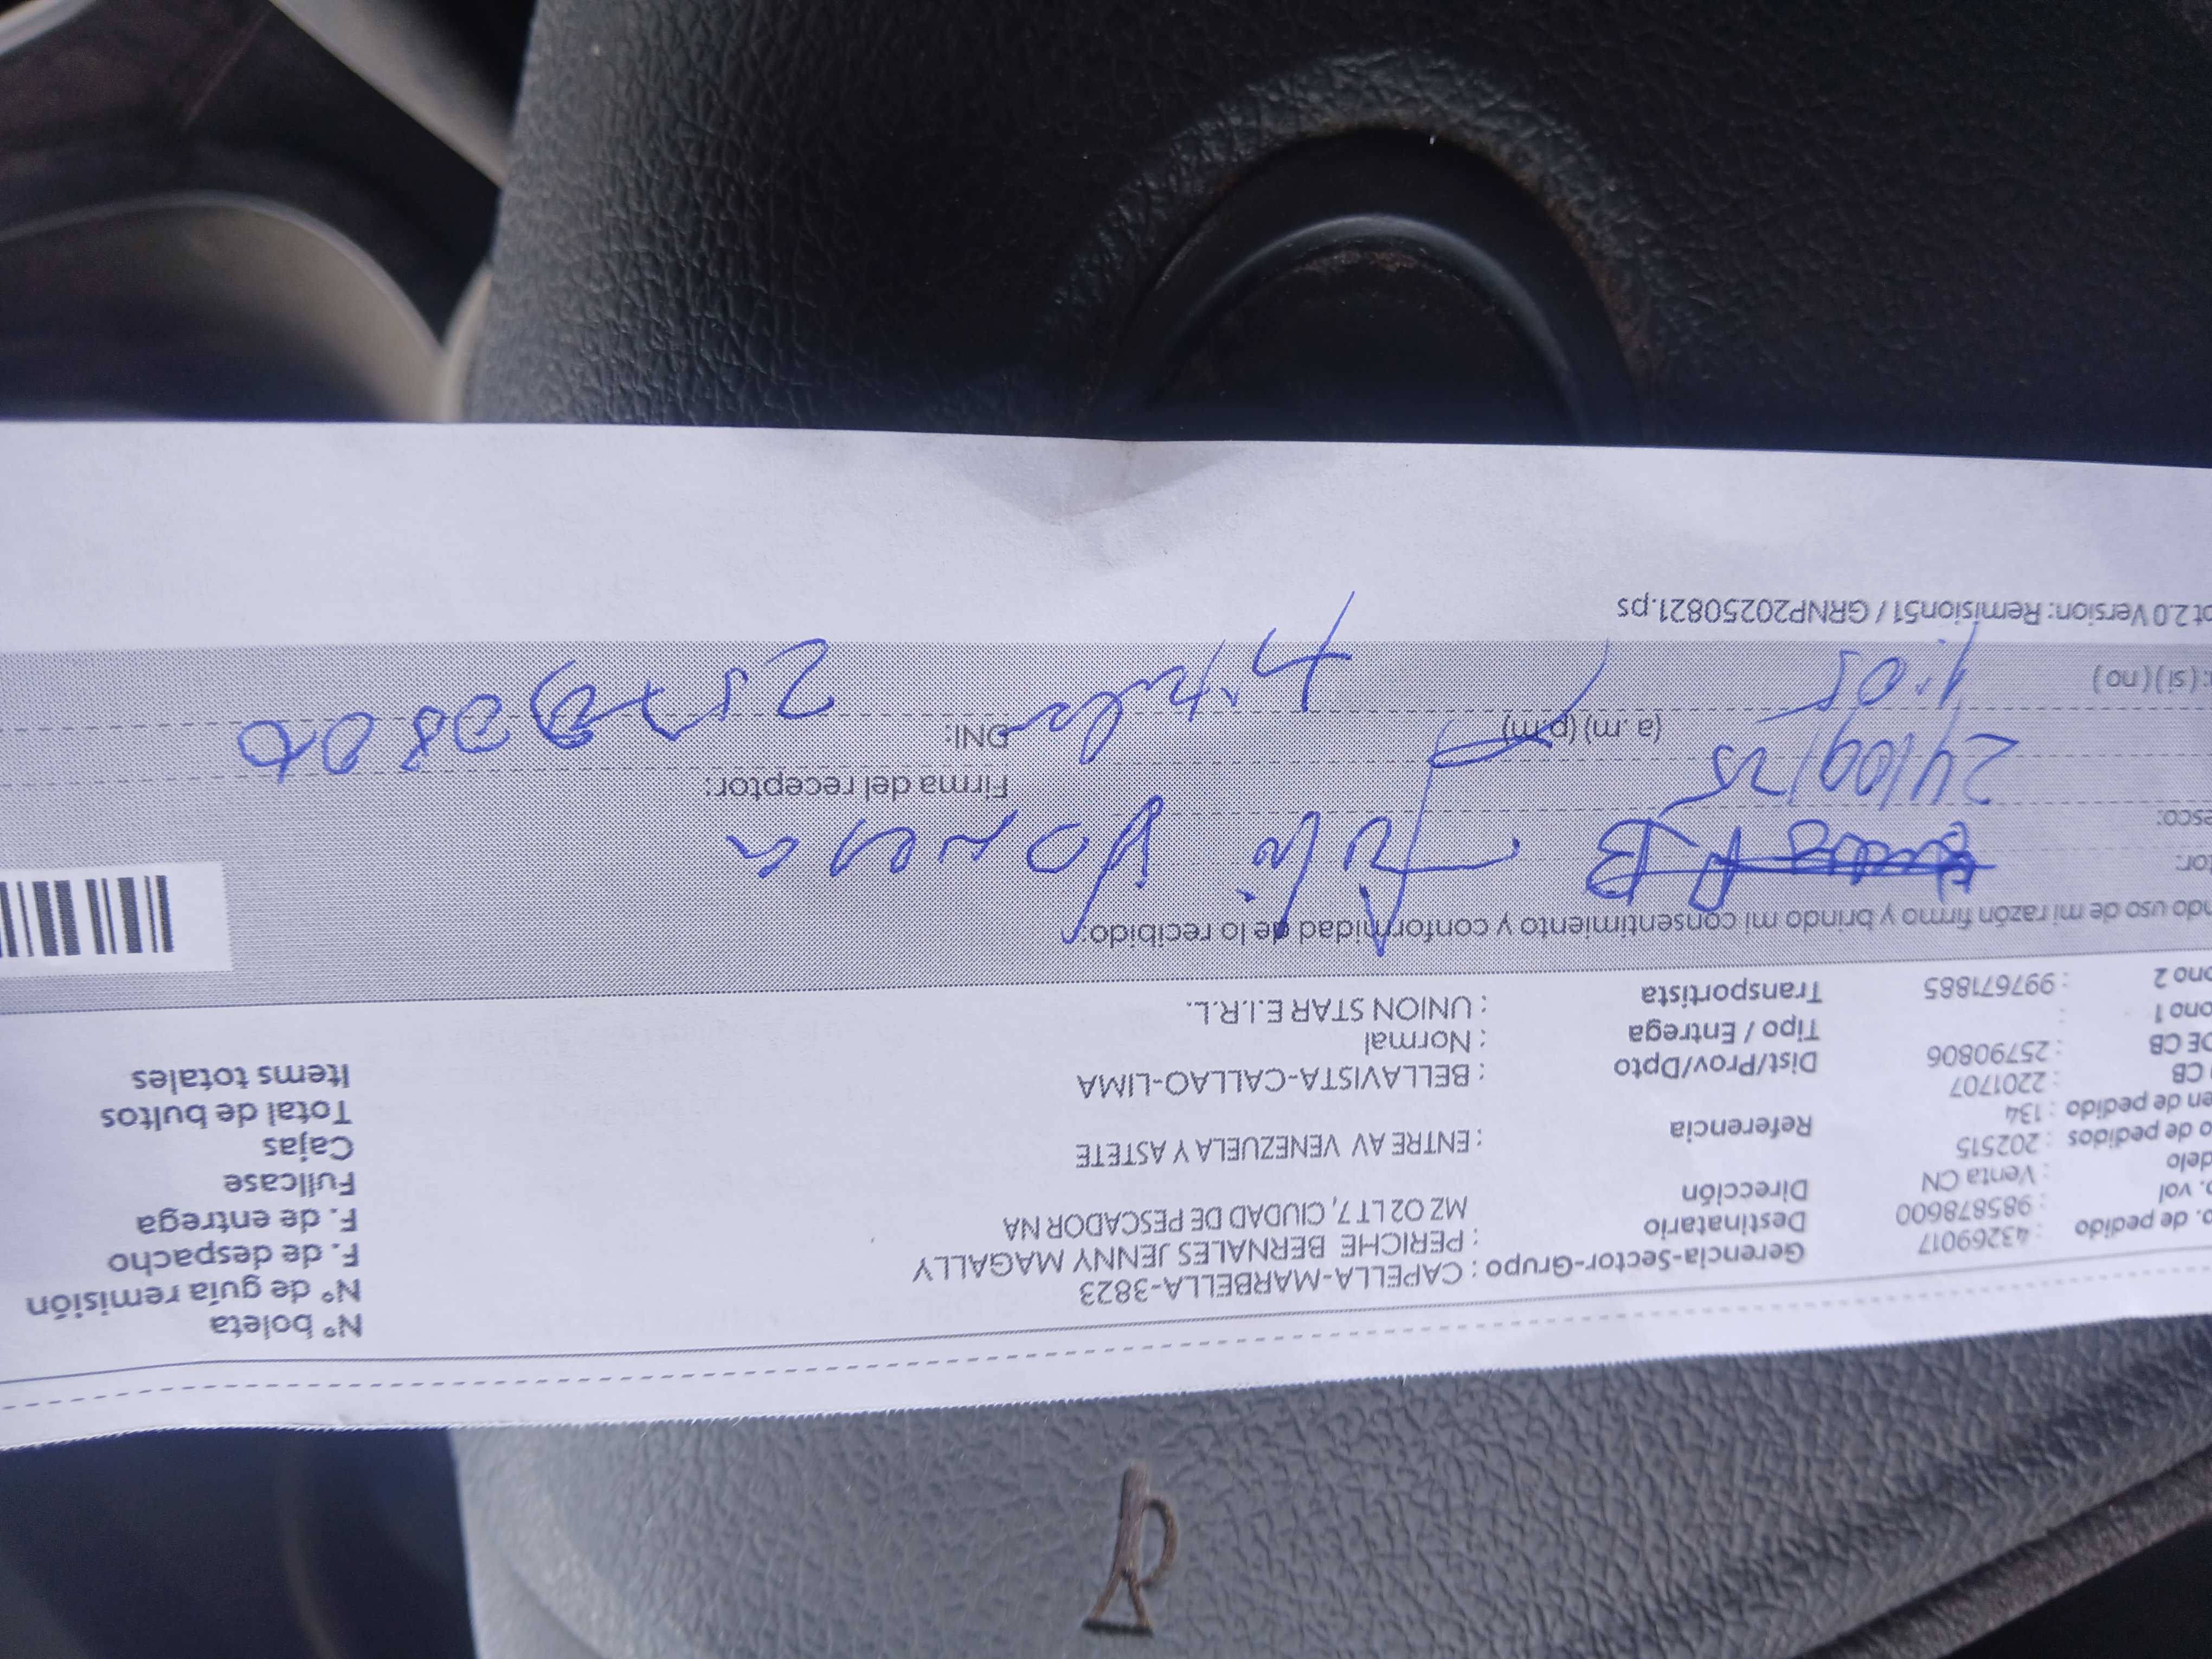 Nº boleta
Gerencia-Sector-Grupo : CAPELLA-MARBELLA-3823
Nº de guía remisión
o. de pedido : 43269017
Destinatario : PERICHE BERNALES JENNY MAGALLY
F. de despacho
o. vol : 985878600
Dirección MZ O2 LT 7, CIUDAD DE PESCADOR NA
F. de entrega
delo : Venta CN
Fullcase
o de pedidos : 202515
Referencia : ENTRE AV VENEZUELA Y ASTETE
Cajas
en de pedido : 134
Total de bultos
CB : 2201707
Dist/Prov/Dpto : BELLAVISTA-CALLAO-LIMA
Items totales
DE CB : 25790806
Tipo / Entrega : Normal
ono 1 :
Transportista : UNION STAR E.I.R.L.
ono 2 : 997671885
ndo uso de mi razón firmo y brindo mi consentimiento y conformidad de lo recibido:
tor:
esco:
Firma del receptor:
24/09/25
(a.m) (p.m)
DNI: 25790806
1:05
: (si) (no)
ot 2.0 Version: Remision51 / GRNP20250821.ps